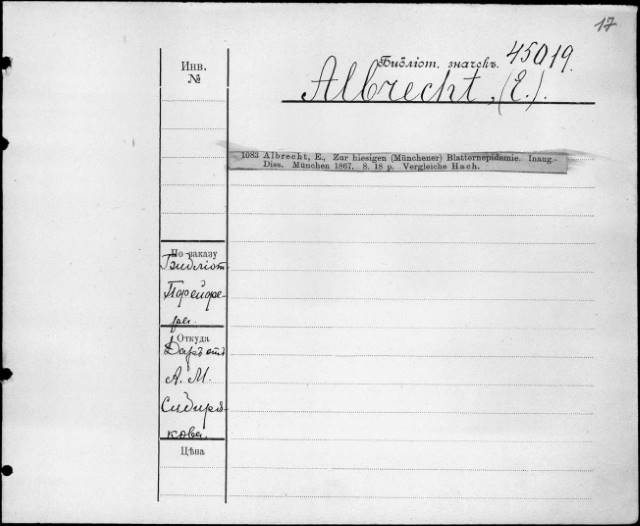 17
Библіот. значекъ. 45019.
Инв.
№
Albrecht, (E.).
1083 Albrecht, E., Zur hiesigen (Münchener) Blatternepidemie. Inaug.-
Diss. München 1867. 8. 18 p. Vergleiche Hach.
По заказу
Библіот
Пфейфе-
ра.
Откуда
Даръ отъ
А. М.
Сибиря-
кова.
Цѣна